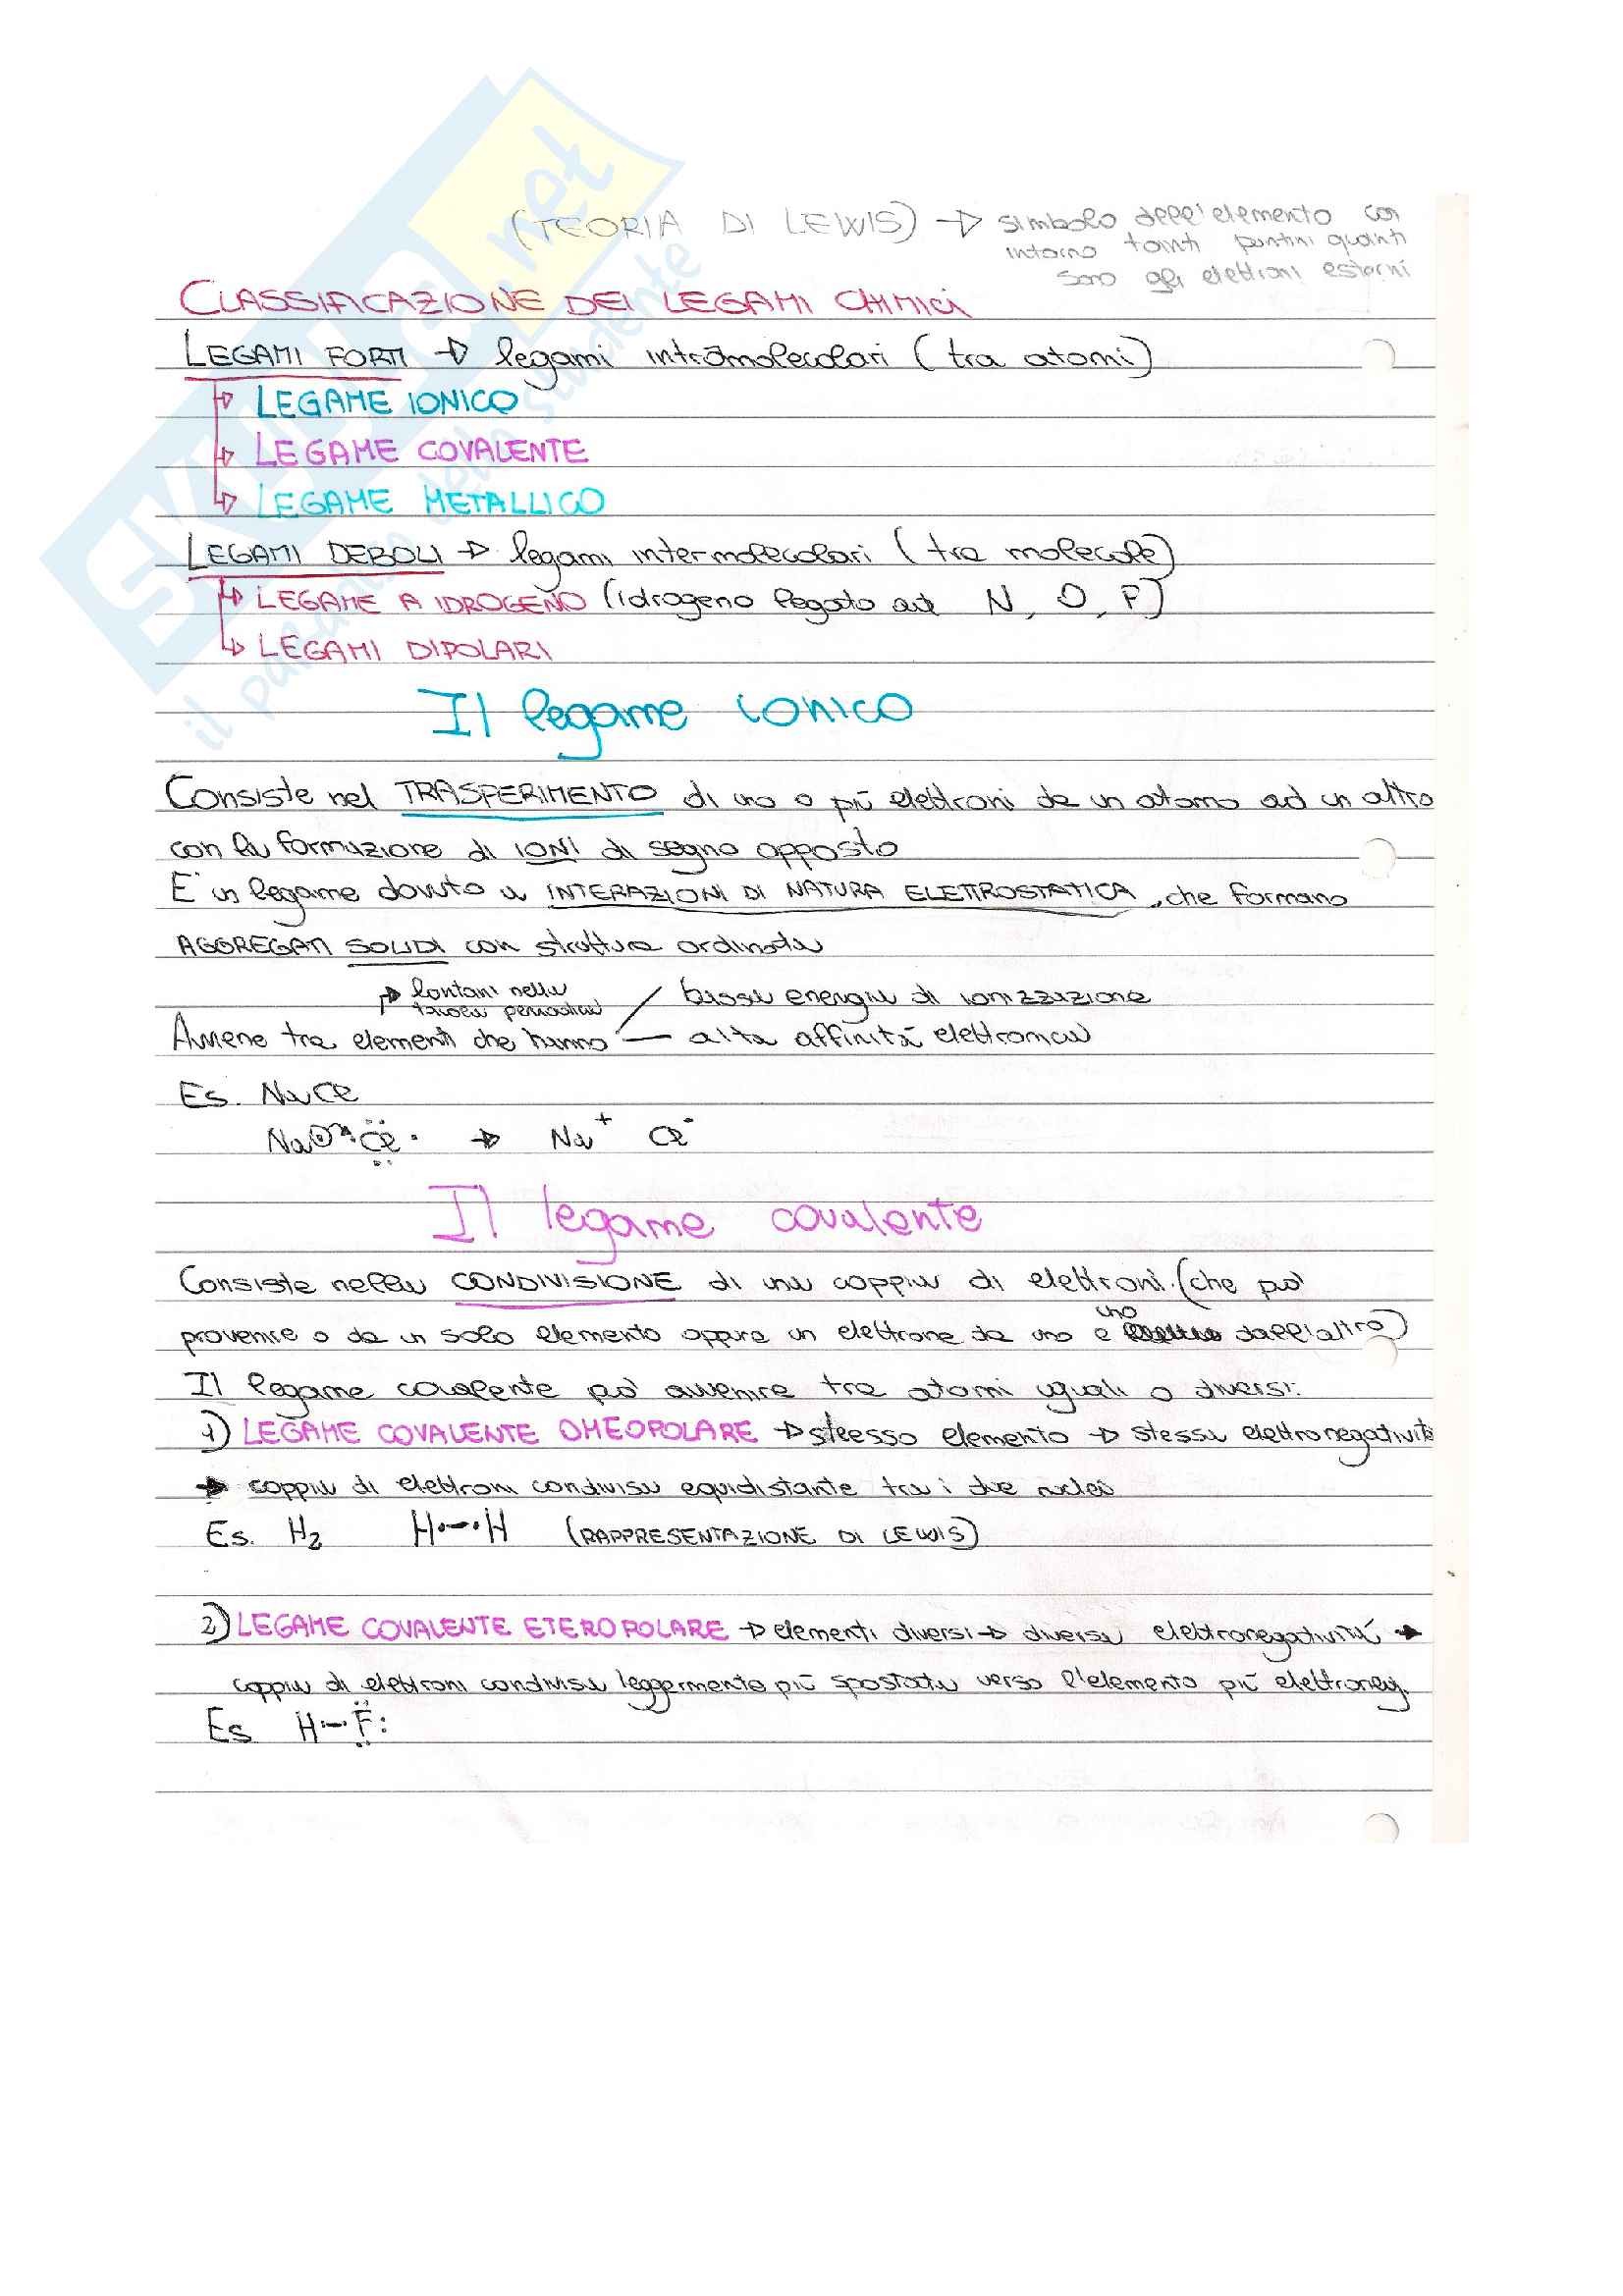 (TEORIA DI LEWIS) → simbolo dell'elemento con
intorno tanti puntini quanti
sono gli elettroni esterni
CLASSIFICAZIONE DEI LEGAMI CHIMICI
LEGAMI FORTI → legami intramolecolari (tra atomi)
→ LEGAME IONICO
→ LEGAME COVALENTE
→ LEGAME METALLICO
LEGAMI DEBOLI → legami intermolecolari (tra molecole)
→ LEGAME A IDROGENO (idrogeno legato ad N, O, F)
→ LEGAMI DIPOLARI
Il legame ionico
Consiste nel TRASFERIMENTO di uno o più elettroni da un atomo ad un altro
con la formazione di IONI di segno opposto
E' un legame dovuto a INTERAZIONI DI NATURA ELETTROSTATICA, che formano
AGGREGATI SOLIDI con struttura ordinata
→ lontani nella
tavola periodica
bassa energia di ionizzazione
Avviene tra elementi che hanno — alta affinità elettronica
Es. NaCl
Na· :Cl· → Na+ Cl-
Il legame covalente
Consiste nella CONDIVISIONE di una coppia di elettroni. (che può
provenire o da un solo elemento oppure un elettrone da uno e uno dall'altro)
Il legame covalente può avvenire tra atomi uguali o diversi:
1) LEGAME COVALENTE OMEOPOLARE → steesso elemento → stessa elettronegatività
→ coppia di elettroni condivisa equidistante tra i due nuclei
Es. H2 H·–·H (RAPPRESENTAZIONE DI LEWIS)
2) LEGAME COVALENTE ETEROPOLARE → elementi diversi → diversa elettronegatività →
coppia di elettroni condivisa leggermente più spostata verso l'elemento più elettroneg.
Es H·–·F:
SKUOLA.net
il paradiso dello studente